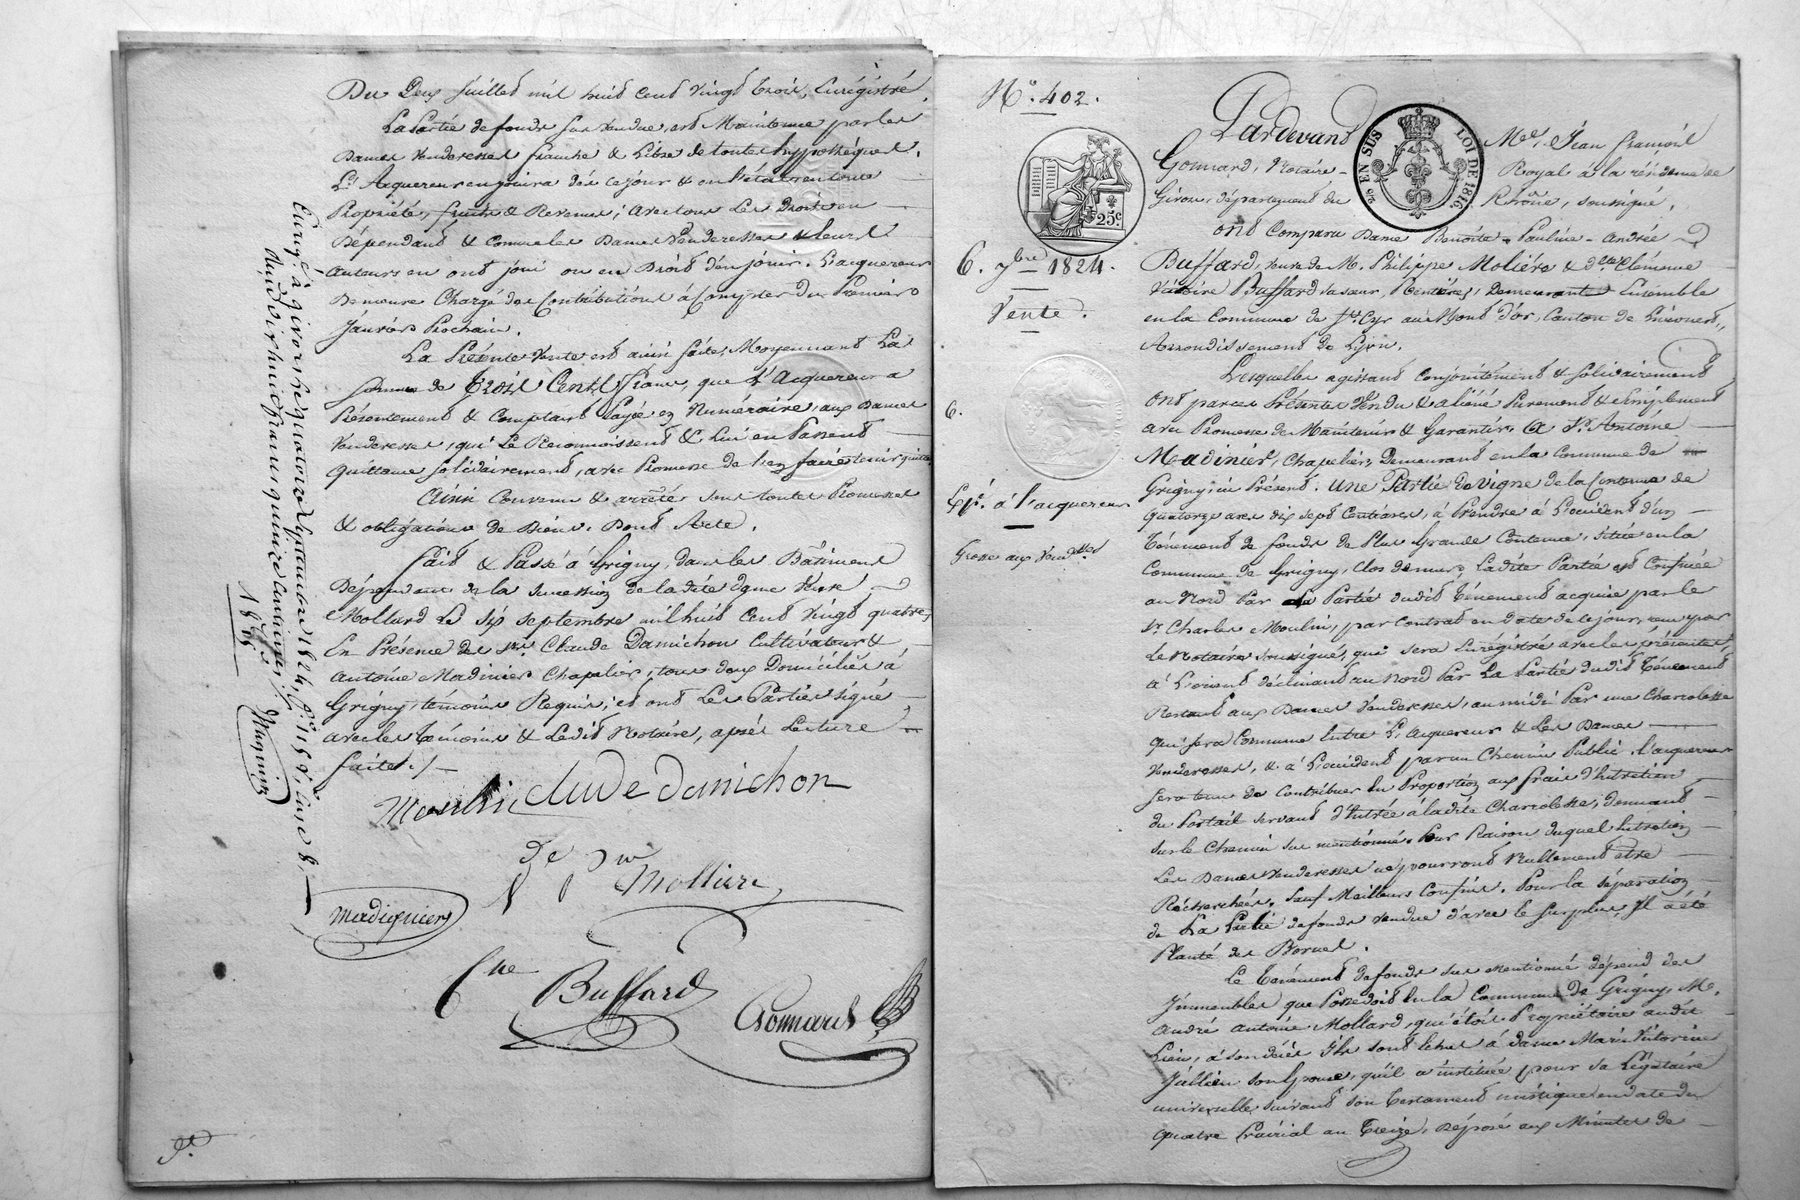 Du Deux juillet mil huit cent vingt trois, Enrégistré.
La Partie de fonds sus vendue, est Maintenue par les
Dames Venderesses franche & Libre de toutes hypothéques.
L'Acquereur en jouira dès ce jour & en l'état en toute
Propriété, fruits & Revenus; avec tous Les Droits en
Dépendants & comme les Dames Venderesses & leurs
auteurs en ont joui ou eu Droit d'en jouir. L'acquereur
Demeure Chargé des Contributions à Compter du Premier
Janvier Prochain.
La Présente Vente est ainsi faite, Moyennant La
somme de Trois Cents francs, que L'Acquereur a
Présentement & Comptant Payée en Numéraire, aux Dames
Venderesses, qui Le Reconnoissent & Lui en Passent
quittance solidairement, avec Promesse de l'en faire tenir quitte.
Ainsi Convenu & arrêté sous toutes Promesses
& obligations de Biens. Dont Acte.
Fait & Passé à Grigny, dans les Bâtiments
Dépendants de la succession de la dite dame Veuve
Mollard Le six septembre mil huit Cent Vingt quatre,
En Présence des Srs. Claude Damichon Cultivateur &
antoine Madinier Chapelier, tous deux Domiciliés à
Grigny, témoins Requis; et ont Les Parties signé
avec les témoins & Ledit Notaire, après Lecture
faite./.
Moulin Clude Damichon
Molliere
Madignier
Cne Buffard
Gonnard
Enregé à givors le quatorze Septembre 1824, fo. 118 vo, Case 8,
Reçu dix huit francs quinze centimes
18f 15
Magnin
No. 402.
25c
6. 7bre 1824.
Vente.
6.
Expn. à l'acquereur
Grosse aux Venderesses
EN SUS
LOI DE 1816
Pardevant Mee. Jean François
Gonnard, Notaire Royal à la résidence de
Givors, département du Rhône, soussigné,
ont Comparu Dame Benoite-Pauline-Andrée
Buffard, veuve de M. Philippe Molière & Dlle Clémence
Victoire Buffard sa sœur, Rentières, Demeurantes Ensemble
en la Commune de St. Cyr au Mont d'or, Canton de Limonest,
Arrondissement de Lyon.
Lesquelles agissant Conjointement & solidairement
ont par ces Présentes Vendu & aliéné Purement & simplement
avec Promesse de Maintenir & Garantir, A Sr. Antoine
Madinier, Chapelier, Demeurant en la Commune de
Grigny, ici Présent. Une Partie de Vigne de la Contenue de
quatorze ares dix sept Centiares, à Prendre à L'occident d'un
Ténement de fonds de Plus Grande Contenue, située en la
Commune de Grigny, Clos de murs, la dite Partie est Confinée
au Nord Par la Partie dudit Ténement acquise par le
Sr. Charles Moulin, par Contrat en date de ce jour, reçu par
Le Notaire soussigné, qui sera Enrégistré avec les présentes,
à L'orient déclinant au Nord Par La Partie dudit Ténement
Restant aux Dames Venderesses, au midi Par une Charcolesse
qui sera Commune Entre L'Acquereur & Les Dames
Venderesses, & à L'occident par un Chemin Public. L'acquereur
sera tenu de Contribuer En Proportion aux frais d'Entretien
du Portail servant d'Entrée à la dite Charcolesse, donnant
sur le Chemin sus mentionné. Pour Raison duquel Entretien
Les Dames Venderesses ne pourront Nullement être
Recherchées, sauf Meilleurs Confins. Pour la séparation
de La Partie de fonds Vendue d'avec le surplus, Il a été
Planté des Bornes.
Le Ténement de fonds sus Mentionné dépend des
Immeubles que Possedoit En la Commune de Grigny, M.
André Antoine Mollard, qui étoit Propriétaire audit
Lieu, à son décès Ils sont échus à dame Marie Victorine
Jullien son Epouse, qu'il a instituée pour sa Légataire
universelle suivant son Testament mistique en date du
quatre Prairial an Treize, déposé aux Minutes de